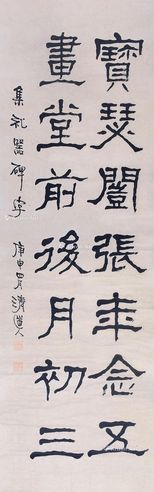 寶瑟闓張年念五
畫堂前後月初三
集礼器碑字
庚申四月清道人